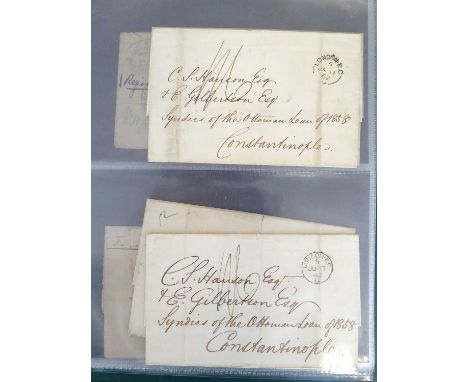 LONDON E.C
C. S. Hanson Esq
& E. Gilbertson Esq
Syndics of the Ottoman Loan of 1858
Constantinople
C. S. Hanson Esq.
& E. Gilbertson Esq
Syndics of the Ottoman Loan of 1858
Constantinople